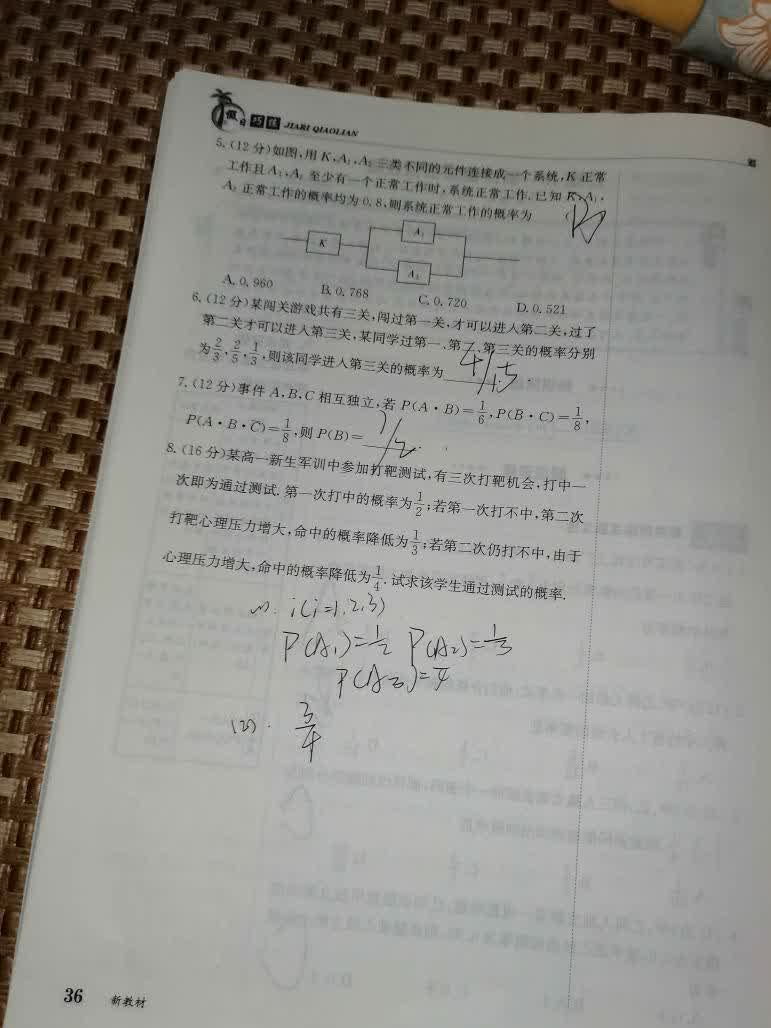 假日 巧练 JIARI QIAOLIAN
5. (12分)如图,用K,A₁,A₂三类不同的元件连接成一个系统,K正常
工作且A₁,A₂至少有一个正常工作时,系统正常工作.已知K,A₁,
A₂正常工作的概率均为0.8,则系统正常工作的概率为 (B
K
A₁
A₂
A. 0.960 B. 0.768 C. 0.720 D. 0.521
6. (12分)某闯关游戏共有三关,闯过第一关,才可以进入第二关,过了
第二关才可以进入第三关,某同学过第一、第二、第三关的概率分别
为2/3,2/5,1/3,则该同学进入第三关的概率为 4/15 .
7. (12分)事件A,B,C相互独立,若P(A·B)=1/6,P(B·C)=1/8,
P(A·B·C)=1/8,则P(B)= 1/2 .
8. (16分)某高一新生军训中参加打靶测试,有三次打靶机会,打中一
次即为通过测试.第一次打中的概率为1/2;若第一次打不中,第二次
打靶心理压力增大,命中的概率降低为1/3;若第二次仍打不中,由于
心理压力增大,命中的概率降低为1/4.试求该学生通过测试的概率.
i(i=1,2,3)
P(A₁)=1/2 P(A₂)=1/3
P(A₃)=
(2). 3/4
36 新教材